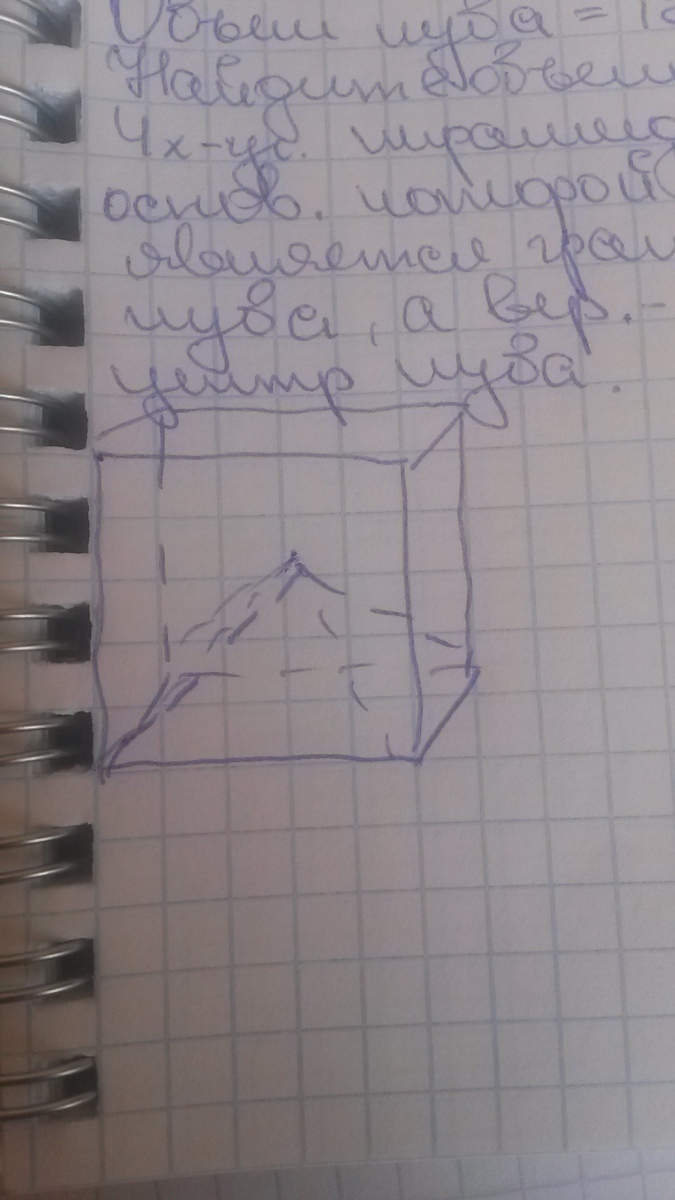 Объем куба = 1
Найдите объем
4х-уг. пирамид
основ. которой
является гран
куба, а вер. -
центр куба.